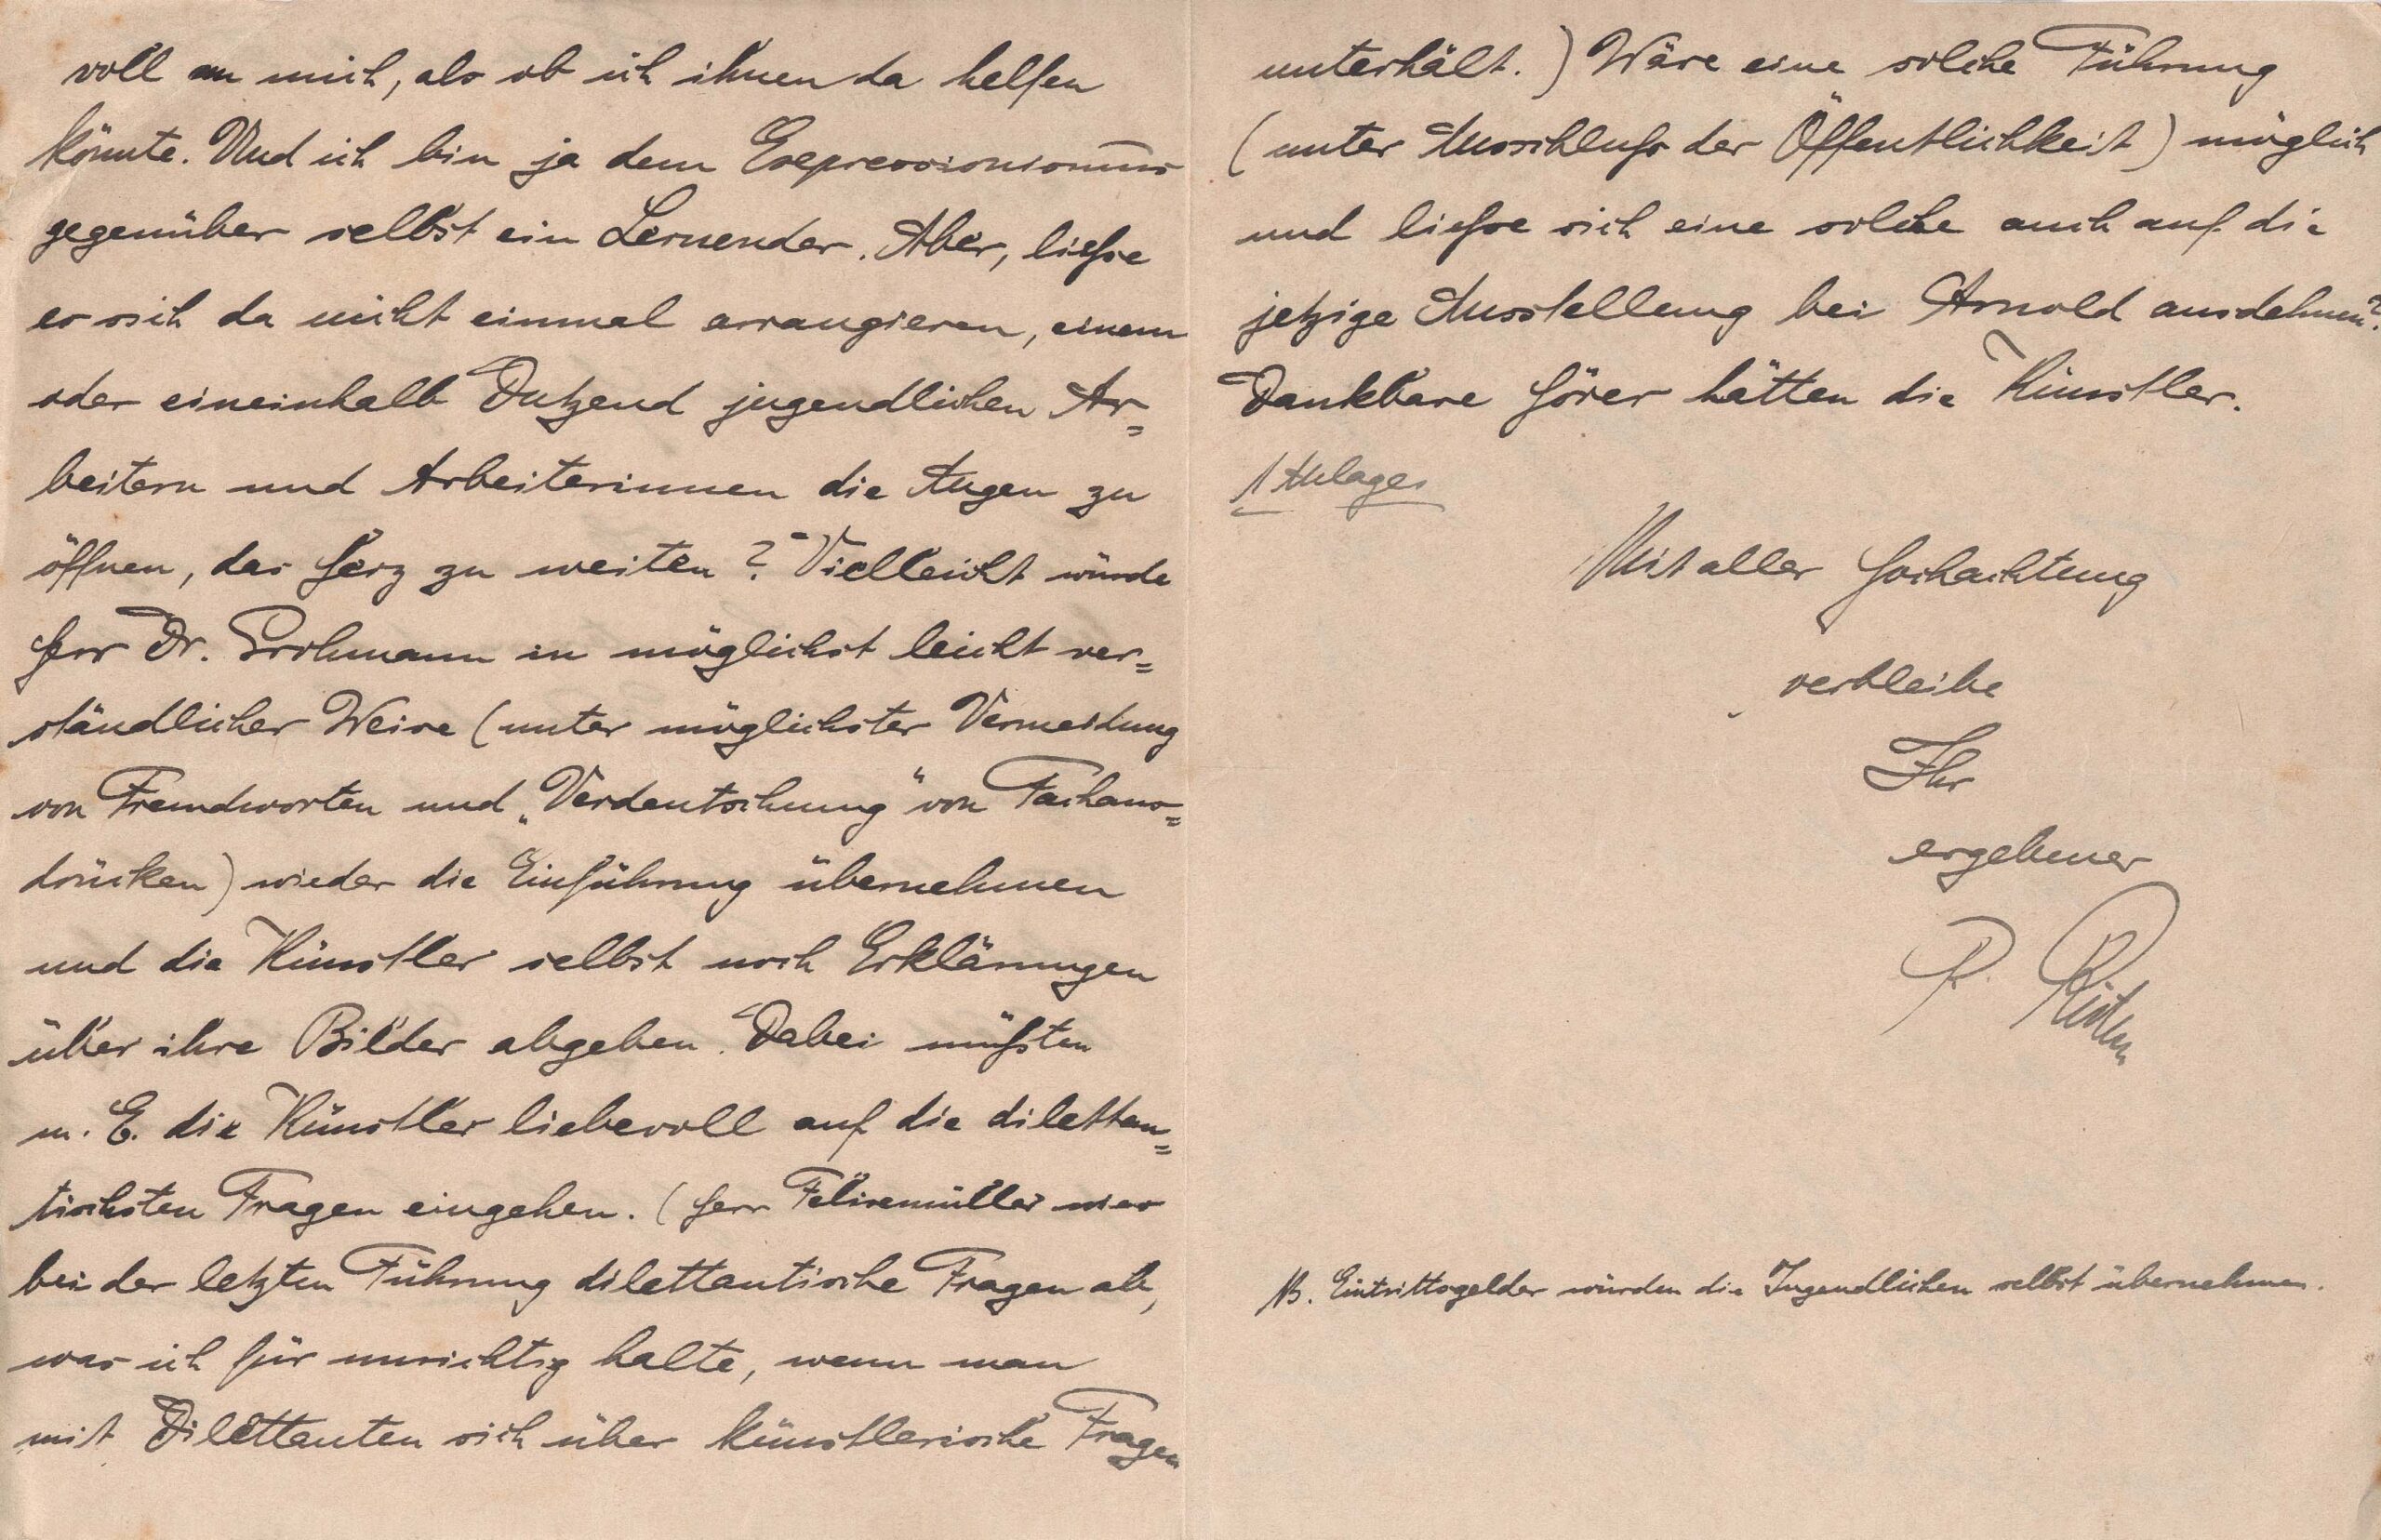 voll an mich, als ob ich ihnen da helfen
könnte. Und ich bin ja dem Expressionism̅us
gegenüber selbst ein Lernender. Aber, ließe
es sich da nicht einmal arrangieren, einem
oder eineinhalb Dutzend jugendlichen Ar=
beitern und Arbeiterinnen die Augen zu
öffnen, das Herz zu weiten? Vielleicht würde
Herr Dr. Grohmann in möglichst leicht ver=
ständlicher Weise (unter möglichster Vermeidung
von Fremdworten und „Verdeutschung“ von Fachaus=
drücken) wieder die Einführung übernehmen
und die Künstler selbst noch Erklärungen
über ihre Bilder abgeben. Dabei müßten
m. E. die Künstler liebevoll auf die dilettan=
tischsten Fragen eingehen. (Herr Felixmüller wies
bei der letzten Führung dilettantische Fragen ab,
was ich für unrichtig halte, wenn man
mit Dilettanten sich über künstlerische Fragen
unterhält.) Wäre eine solche Führung
(unter Ausschluß der Öffentlichkeit) möglich
und ließe sich eine solche auch auf die
jetzige Ausstellung bei Arnold ausdehnen?
Dankbare Hörer hätten die Künstler.
1 Anlage
Mit aller Hochachtung
verbleibe
Ihr
ergebener
NB. Eintrittsgelder würden die Jugendlichen selbst übernehmen.